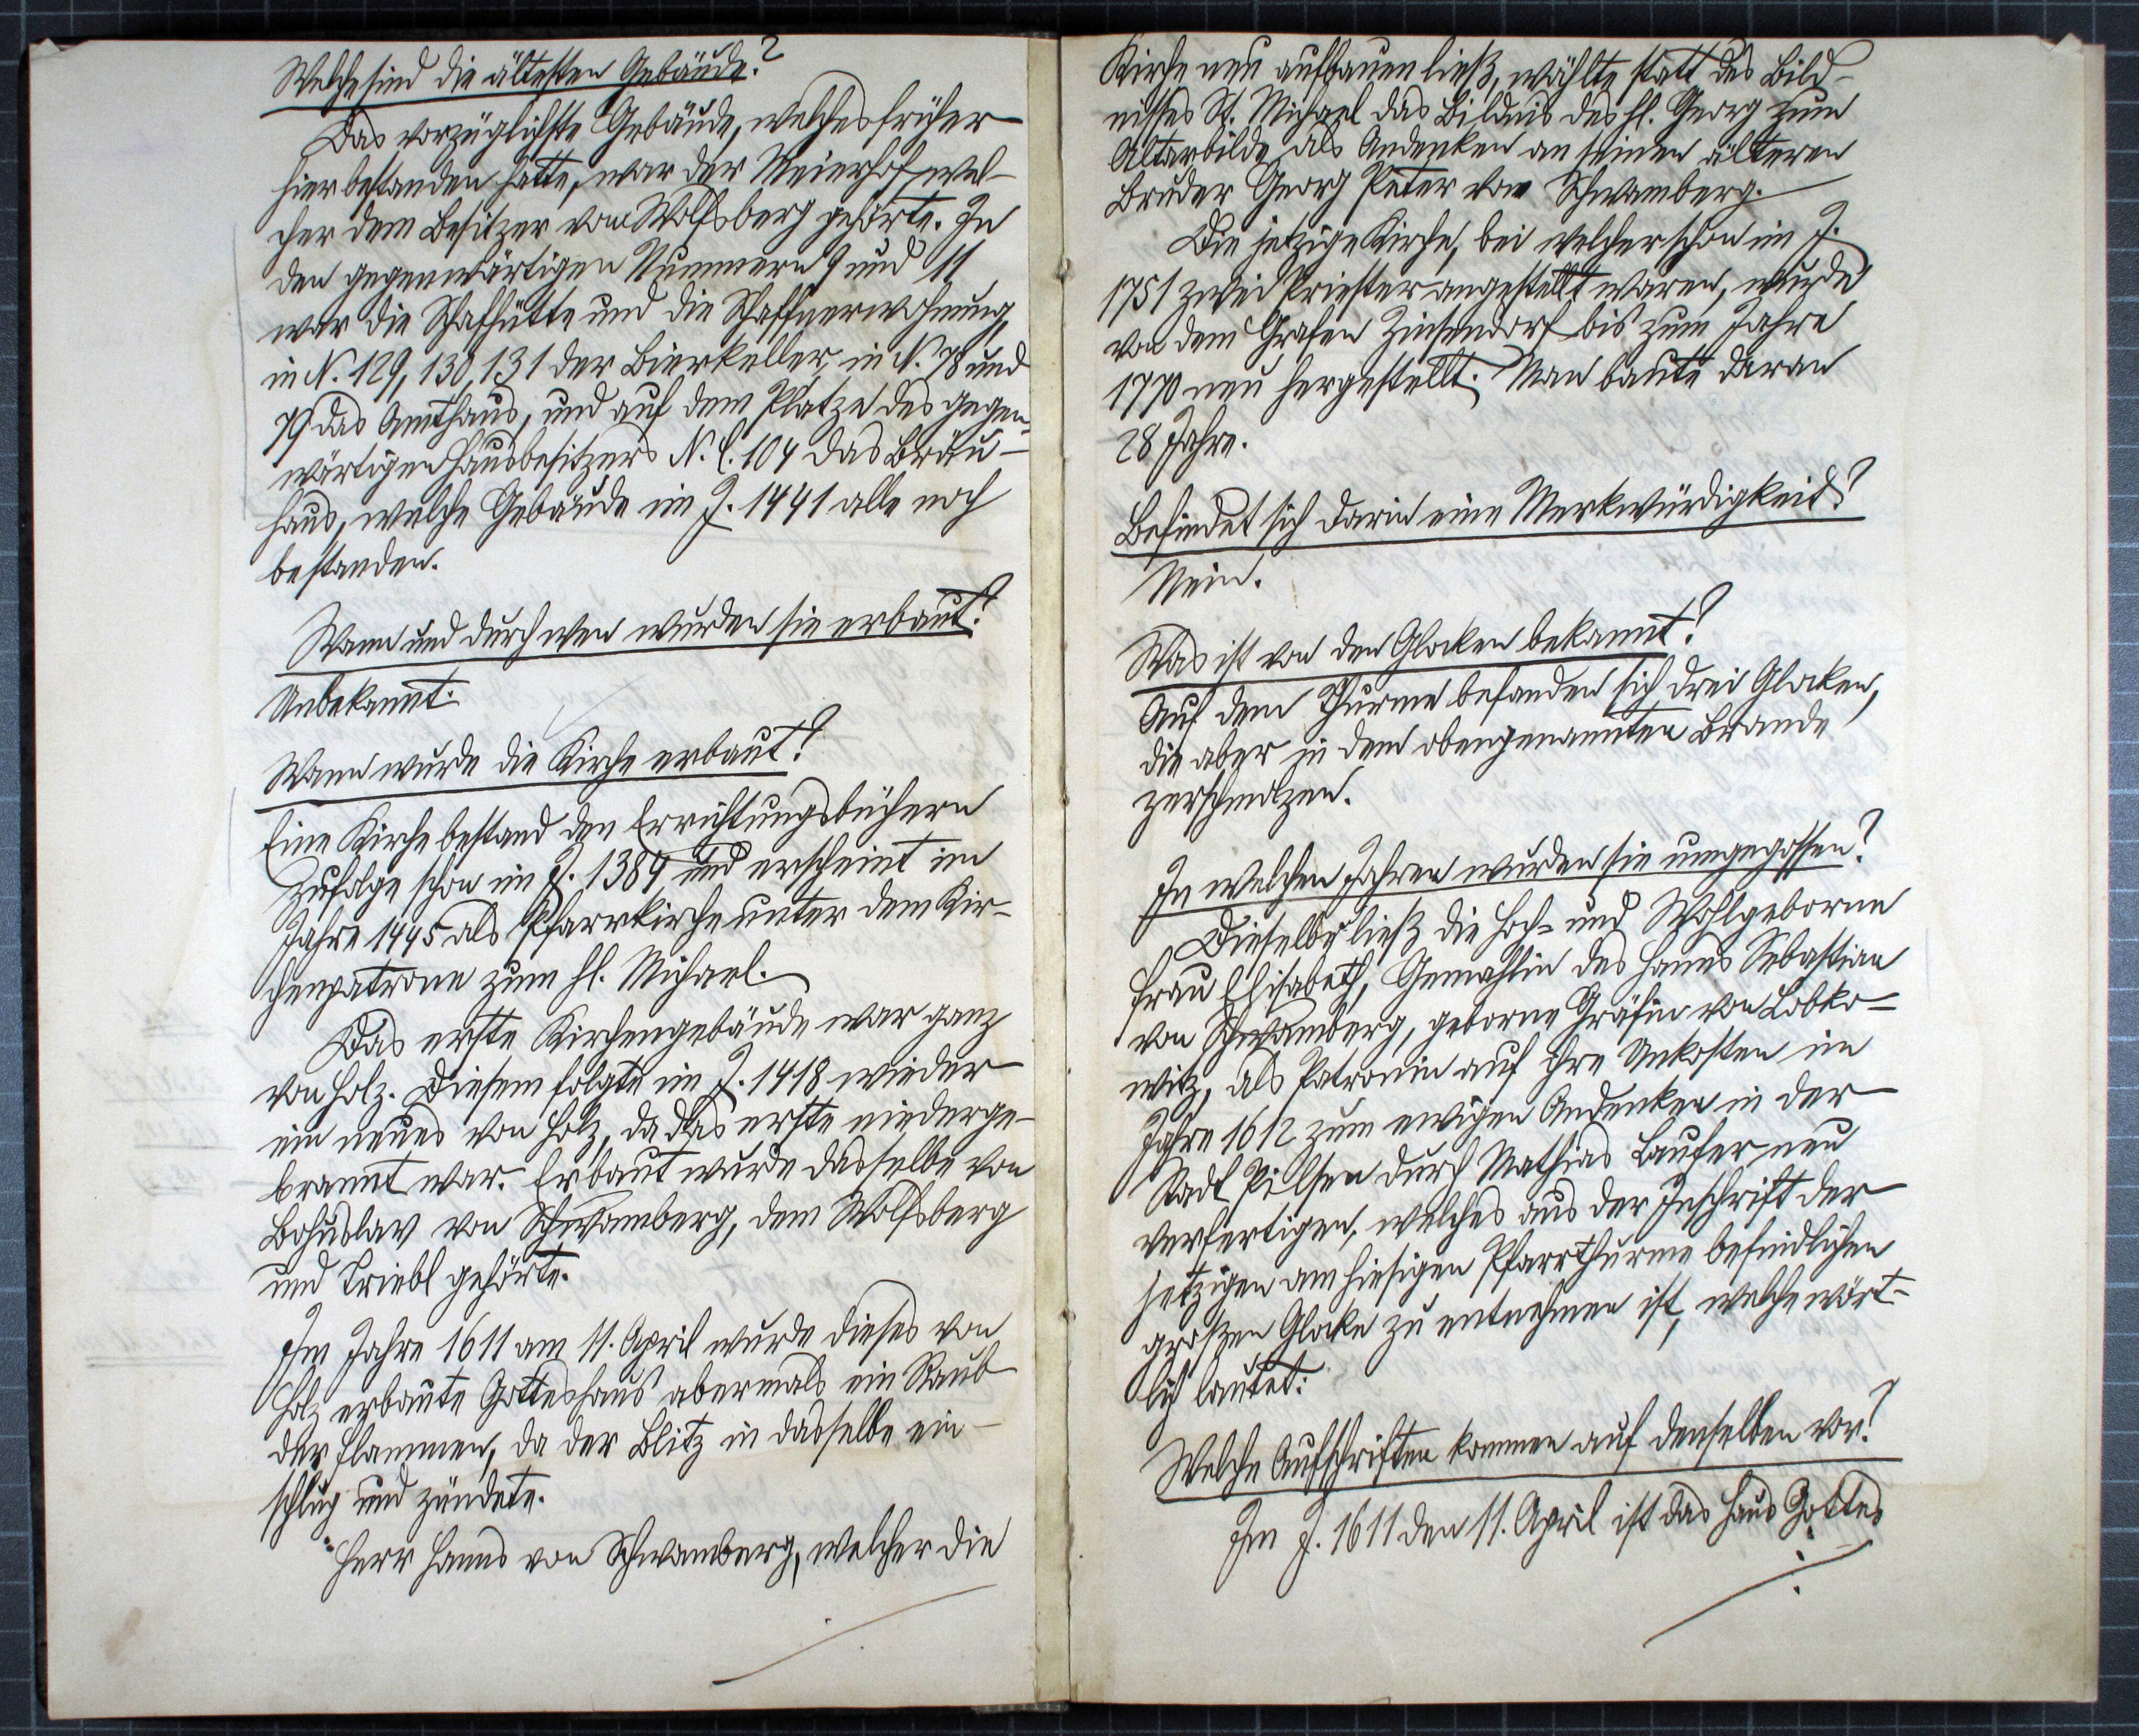 Welche sind die ältesten Gebäude?
Das vorzüglichste Gebäude, welches früher
hier bestanden hatte, war der Meierhof, wel-
cher dem Besitzer von Wolfsberg gehörte. In
den gegenwärtigen Nummern 9 und 11
war die Schafhütte und die Schaffnerwohnung,
in N. 129, 130, 131 der Bierkeller, in N. 78 und
79 das Amthaus, und auf dem Platze des gegen-
wärtigen Hausbesitzers N. C. 104 das Bräu-
haus, welche Gebäude im J. 1441 alle noch
bestanden.
Wann und durch wen wurden sie erbaut?
Unbekannt.
Wann wurde die Kirche erbaut?
Eine Kirche bestand den Errichtungsbüchern
zufolge schon im J. 1384 und erscheint im
Jahre 1445 als Pfarrkirche unter dem Kir-
chenpatrone zum hl. Michael.
Das erste Kirchengebäude war ganz
von Holz. Diesem folgte im J. 1418 wieder
ein neues von Holz, da das erste niederge-
brannt war. Erbaut wurde dasselbe von
Bohuslav von Schwamberg, dem Wolfsberg
und Triebl gehörte.
Im Jahre 1611 am 11. April wurde dieses von
Holz erbaute Gotteshaus abermals ein Raub
der Flammen, da der Blitz in dasselbe ein-
schlug und zündete.
Herr Hanns von Schwamberg, welcher die
Kirche neu aufbauen ließ, wählte statt des Bild-
nisses St. Michael das Bildnis des hl. Georg zum
Altarbilde als Andenken an seinen älteren
Bruder Georg Peter von Schwamberg.
Die jetzige Kirche, bei welcher schon im J.
1751 zwei Priester angestellt waren, wurde
von dem Grafen Zinsendorf bis zum Jahre
1770 neu hergestellt. Man baute daran
28 Jahre.
Befindet sich darin eine Merkwürdigkeit?
Nein.
Was ist von den Glocken bekannt?
Auf dem Thurme befanden sich drei Glocken,
die aber in dem obengenannten Brande
zerschmolzen.
In welchen Jahren wurden sie umgegossen?
Dieselbe ließ die Hoch- und Wohlgeborne
Frau Elisabeth, Gemahlin des Hanns Sebastian
von Schwamberg, geborne Gräfin von Lobko-
witz, als Patronin auf ihre Unkosten im
Jahre 1612 zum ewigen Andenken in der
Stadt Pilsen durch Mathias Laufer neu
verfertigen, welches aus der Inschrift der
jetzigen am hiesigen Pfarrthurme befindlichen
großen Glocke zu entnehmen ist, welche wört-
lich lautet:
Welche Aufschriften kommen auf denselben vor?
Im J. 1611 den 11. April ist das Haus Gottes